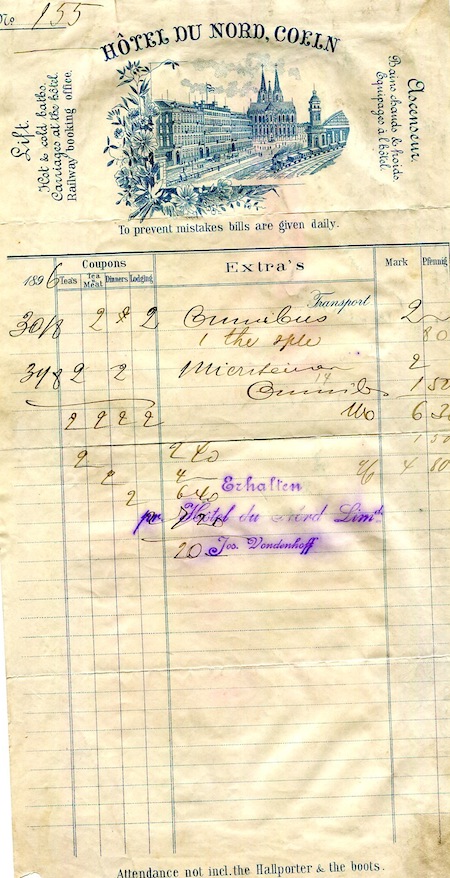 No 155
HÔTEL DU NORD, COELN
Lift.
Hot & cold baths.
Carriages at the hôtel
Railway booking office.
Ascenseur.
Bains chauds & froids.
Equipages à l'hôtel.
To prevent mistakes bills are given daily.
Coupons Extra's Mark Pfennig
1896 Tea's Tea Meat Dinners Lodging
Transport
30/8 2 2 2 Omnibus 2
1 the 80
31/8 2 2 2
Omnib 1 50
2 2 2 2 6 30
1 50
2 2 40
2 4 4 80
2 6 40
2
20
Erhalten
pr. Hôtel du Nord Limtd.
Jos. Vondenhoff
Attendance not incl. the Hallporter & the boots.